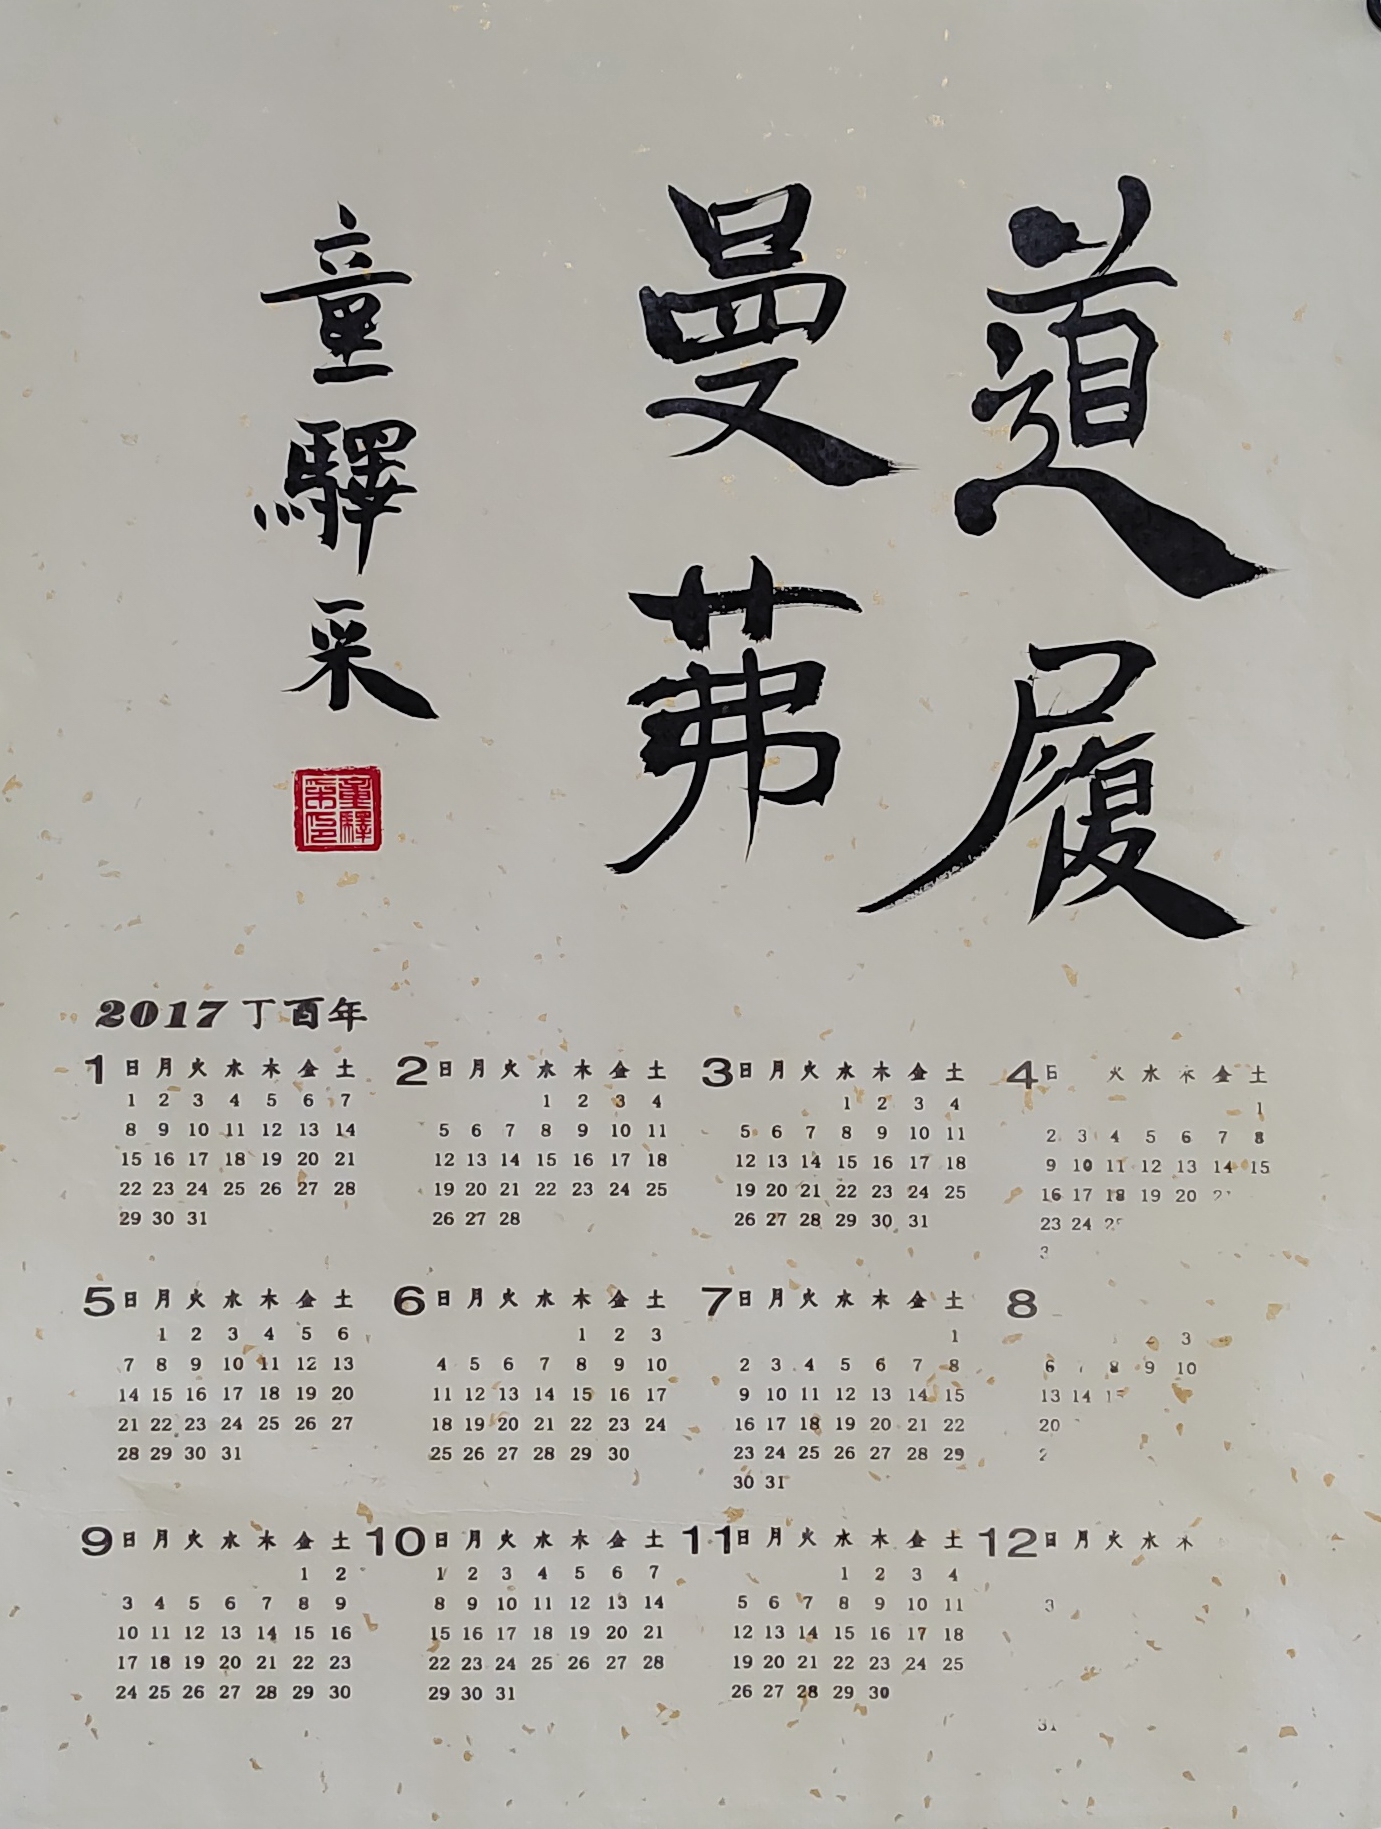 道履
曼茀
童驛采
童驛采印
2017 丁酉年
1 日 月 火 水 木 金 土
1 2 3 4 5 6 7
8 9 10 11 12 13 14
15 16 17 18 19 20 21
22 23 24 25 26 27 28
29 30 31
2 日 月 火 水 木 金 土
1 2 3 4
5 6 7 8 9 10 11
12 13 14 15 16 17 18
19 20 21 22 23 24 25
26 27 28
3 日 月 火 水 木 金 土
1 2 3 4
5 6 7 8 9 10 11
12 13 14 15 16 17 18
19 20 21 22 23 24 25
26 27 28 29 30 31
4 日 火 水 木 金 土
1
2 3 4 5 6 7 8
9 10 11 12 13 14 15
16 17 18 19 20
23 24
5 日 月 火 水 木 金 土
1 2 3 4 5 6
7 8 9 10 11 12 13
14 15 16 17 18 19 20
21 22 23 24 25 26 27
28 29 30 31
6 日 月 火 水 木 金 土
1 2 3
4 5 6 7 8 9 10
11 12 13 14 15 16 17
18 19 20 21 22 23 24
25 26 27 28 29 30
7 日 月 火 水 木 金 土
1
2 3 4 5 6 7 8
9 10 11 12 13 14 15
16 17 18 19 20 21 22
23 24 25 26 27 28 29
30 31
8
3
6 8 9 10
13 14
20
9 日 月 火 水 木 金 土
1 2
3 4 5 6 7 8 9
10 11 12 13 14 15 16
17 18 19 20 21 22 23
24 25 26 27 28 29 30
10 日 月 火 水 木 金 土
1 2 3 4 5 6 7
8 9 10 11 12 13 14
15 16 17 18 19 20 21
22 23 24 25 26 27 28
29 30 31
11 日 月 火 水 木 金 土
1 2 3 4
5 6 7 8 9 10 11
12 13 14 15 16 17 18
19 20 21 22 23 24 25
26 27 28 29 30
12 日 月 火 水 木
3
31